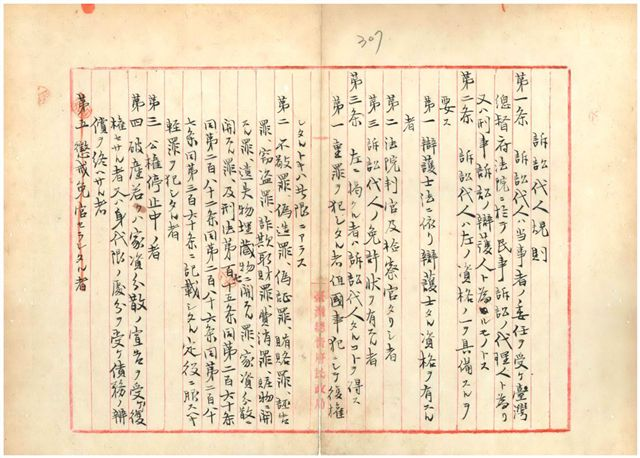 307
訴訟代人規則
第一条 訴訟代人ハ当事者ノ委任ヲ受ケ臺灣
總督府法院ニ於テ民事訴訟ノ代理人ト為リ
又ハ刑事訴訟ノ辯護人ト為ルモノトス
第二条 訴訟代人ハ左ノ資格ノ一ヲ具備スルヲ
要ス
第一 辯護士法ニ依リ辯護士タル資格ヲ有スル
者
第二 法院判官及檢察官タリシ者
第三 訴訟代人ノ免許状ヲ有スル者
第三条 左ニ掲クル者ハ訴訟代人タルコトヲ得ス
第一 重罪ヲ犯シタル者但國事犯ニシテ復權
シタルトキハ此限ニアラス
第二 不敬罪、偽造罪、偽証罪、賄賂罪、誣告
罪、窃盗罪、詐欺取財罪、費消罪、贓物ニ関
スル罪、遺失物埋藏物ニ関スル罪、家資分散ニ
関スル罪及刑法第百十五条同第二百六十条
同第二百八十二条同第二百八十六条同第二百八十
七条同第三百六十条ニ記載シタル定役ニ服スヘキ
輕罪ヲ犯シタル者
第三 公權停止中ノ者
第四 破産若クハ家資分散ノ宣告ヲ受ケ復
權セサル者又ハ身代限ノ處分ヲ受ケ債務ノ辨
償ヲ終ヘサル者
第五 懲戒免官セラレタル者
臺灣總督府民政局